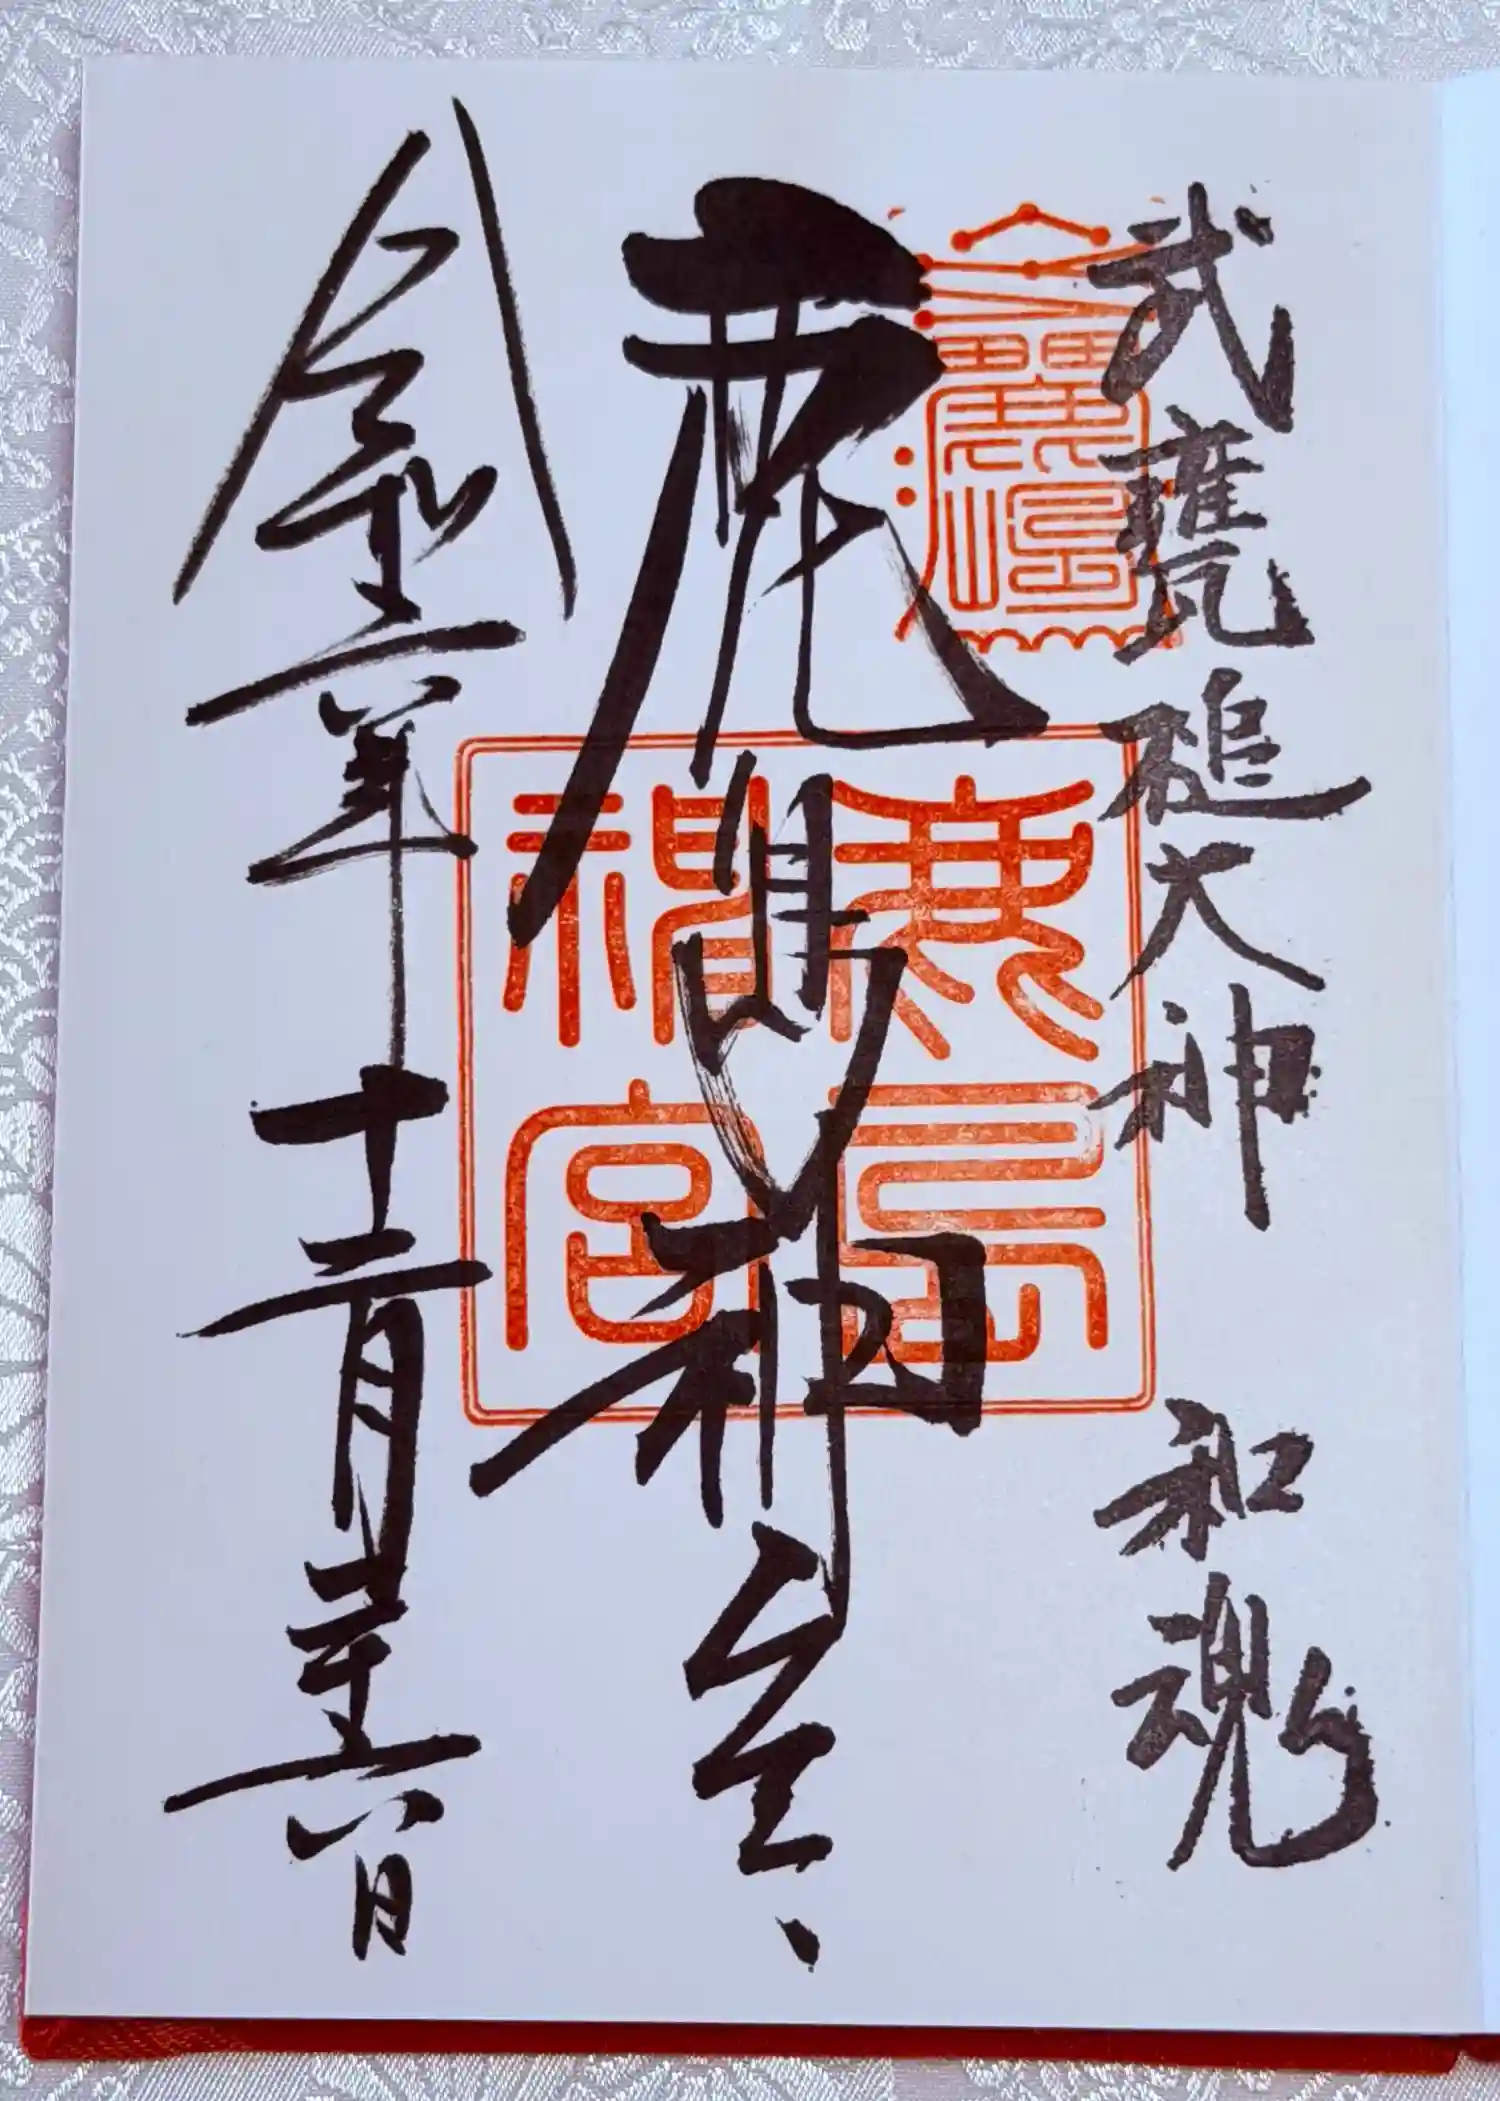 武甕槌大神 和魂
鹿島神宮
令和六年十二月二十六日
鹿島神宮